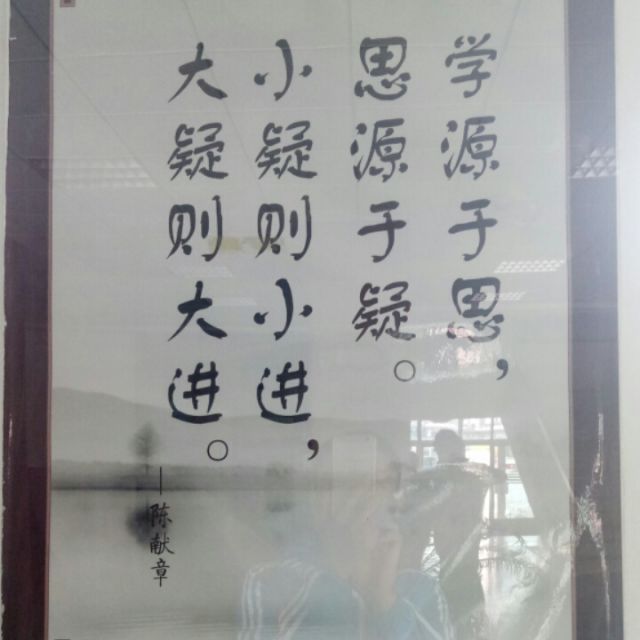 学源于思，
思源于疑。
小疑则小进，
大疑则大进。
—陈献章